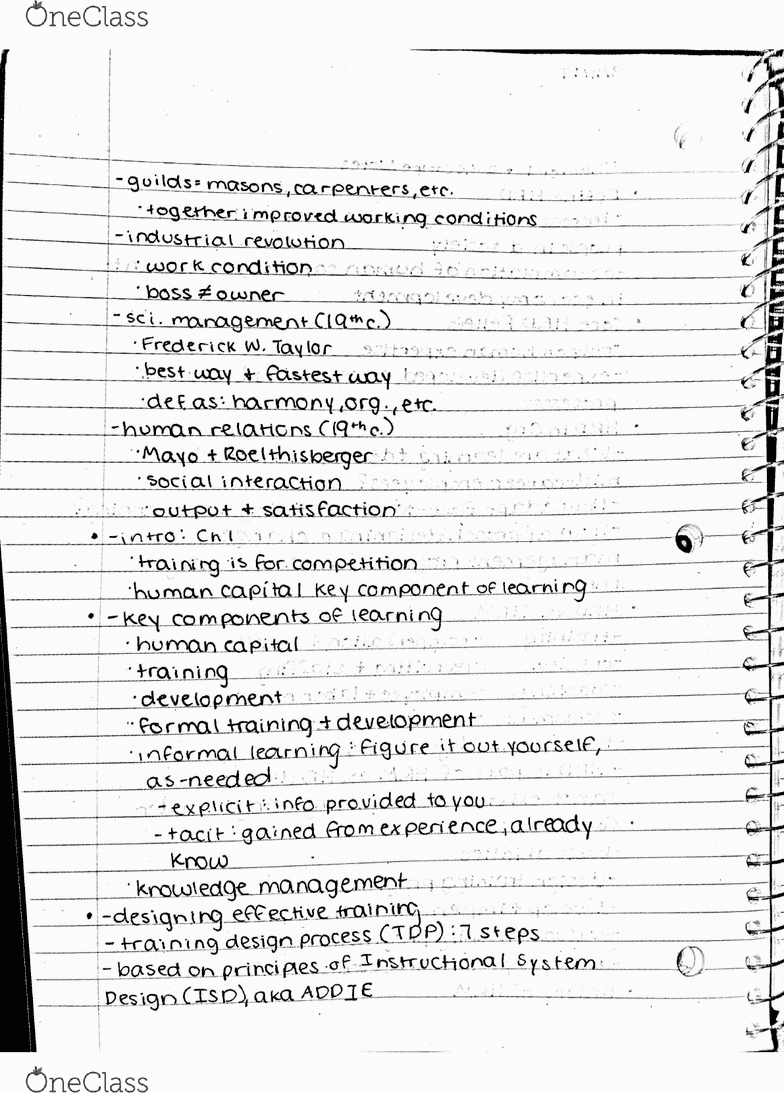 OneClass
-guilds= masons, carpenters, etc.
·together improved working conditions
-industrial revolution
·work condition
·boss ≠ owner
-sci. management (19th c.)
·Frederick W. Taylor
·best way + fastest way
·def as: harmony, org., etc.
-human relations (19th c.)
·Mayo + Roelthisberger
·social interaction
·output + satisfaction
• -intro: Ch 1
·training is for competition
·human capital key component of learning
• -key components of learning
·human capital
·training
·development
·formal training + development
·informal learning: figure it out yourself,
as-needed
-explicit: info provided to you
-tacit: gained from experience, already
know
·knowledge management
• -designing effective training
-training design process (TDP): 7 steps
-based on principles of Instructional System
Design (ISD), aka ADDIE
OneClass